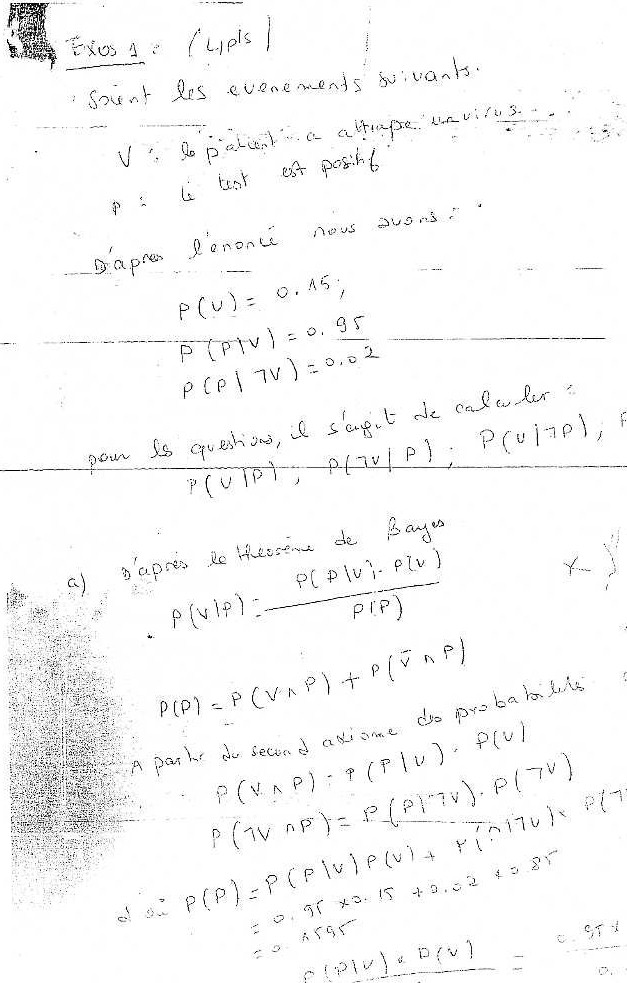 Exos 1 : (4pts)
Soient les evenements suivants.
V : le patient a attrapé un virus
P : le test est positif
D'apres l'enoncé nous avons :
P(V) = 0.15;
P(P|V) = 0.95
P(P|¬V) = 0.02
pour les questions, il s'agit de calculer :
P(V|P) ; P(¬V|P) ; P(V|¬P) ; P
a) D'après le théorème de Bayes
P(V|P) = P(P|V) . P(V)
P(P)
P(P) = P(V ∧ P) + P(V̄ ∧ P)
A partir du second axiome des probabilités :
P(V ∧ P) = P(P|V) . P(V)
P(¬V ∧ P) = P(P|¬V) . P(¬V)
d'où P(P) = P(P|V) P(V) + P(P|¬V) × P(¬
= 0.95 × 0.15 + 0.02 × 0.85
= 0.1595
P(P|V) × P(V) = 0.95 ×
0.